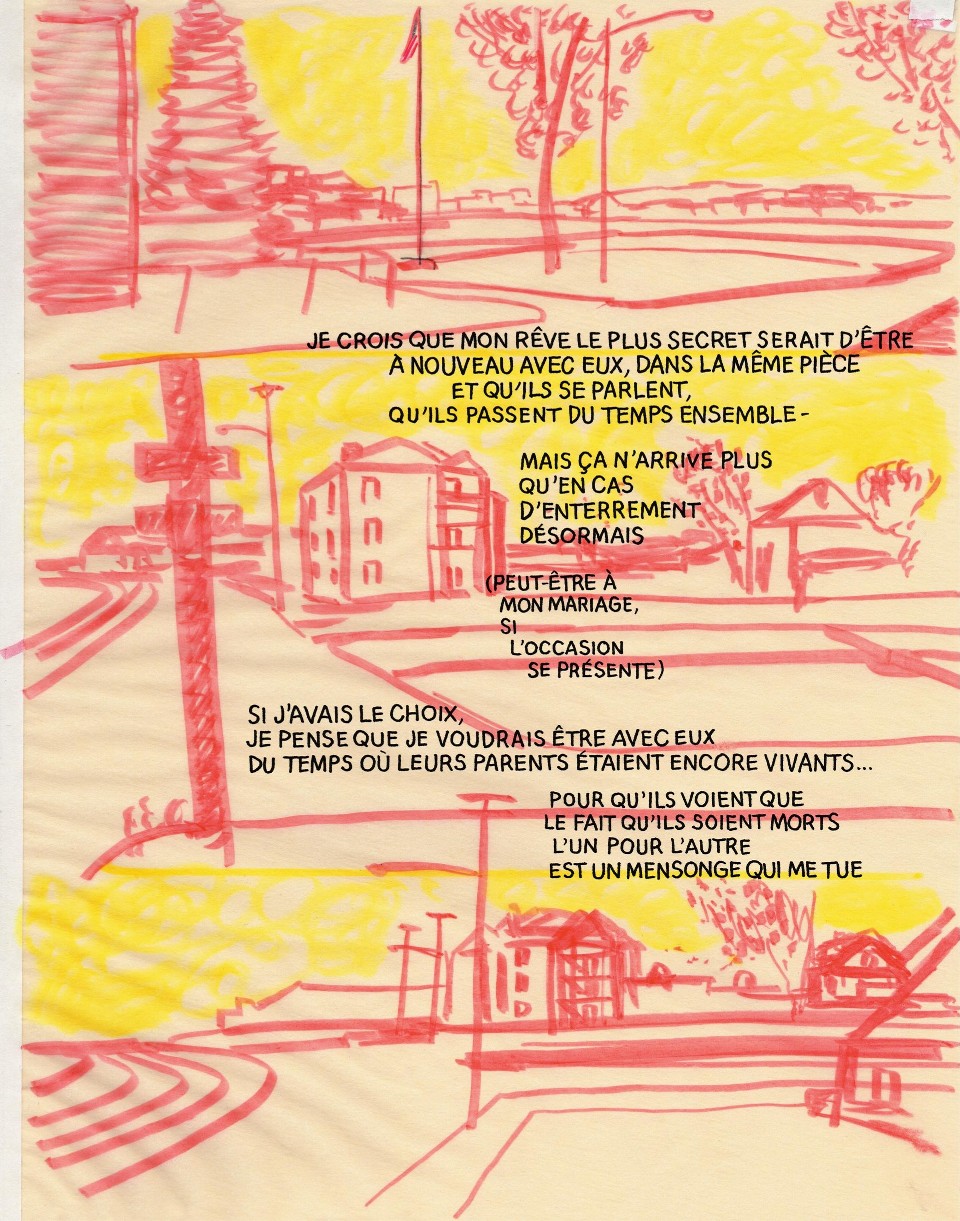 JE CROIS QUE MON RÊVE LE PLUS SECRET SERAIT D'ÊTRE
À NOUVEAU AVEC EUX, DANS LA MÊME PIÈCE
ET QU'ILS SE PARLENT,
QU'ILS PASSENT DU TEMPS ENSEMBLE -
MAIS ÇA N'ARRIVE PLUS
QU'EN CAS
D'ENTERREMENT
DÉSORMAIS
(PEUT-ÊTRE À
MON MARIAGE,
SI
L'OCCASION
SE PRÉSENTE)
SI J'AVAIS LE CHOIX,
JE PENSE QUE JE VOUDRAIS ÊTRE AVEC EUX
DU TEMPS OÙ LEURS PARENTS ÉTAIENT ENCORE VIVANTS...
POUR QU'ILS VOIENT QUE
LE FAIT QU'ILS SOIENT MORTS
L'UN POUR L'AUTRE
EST UN MENSONGE QUI ME TUE